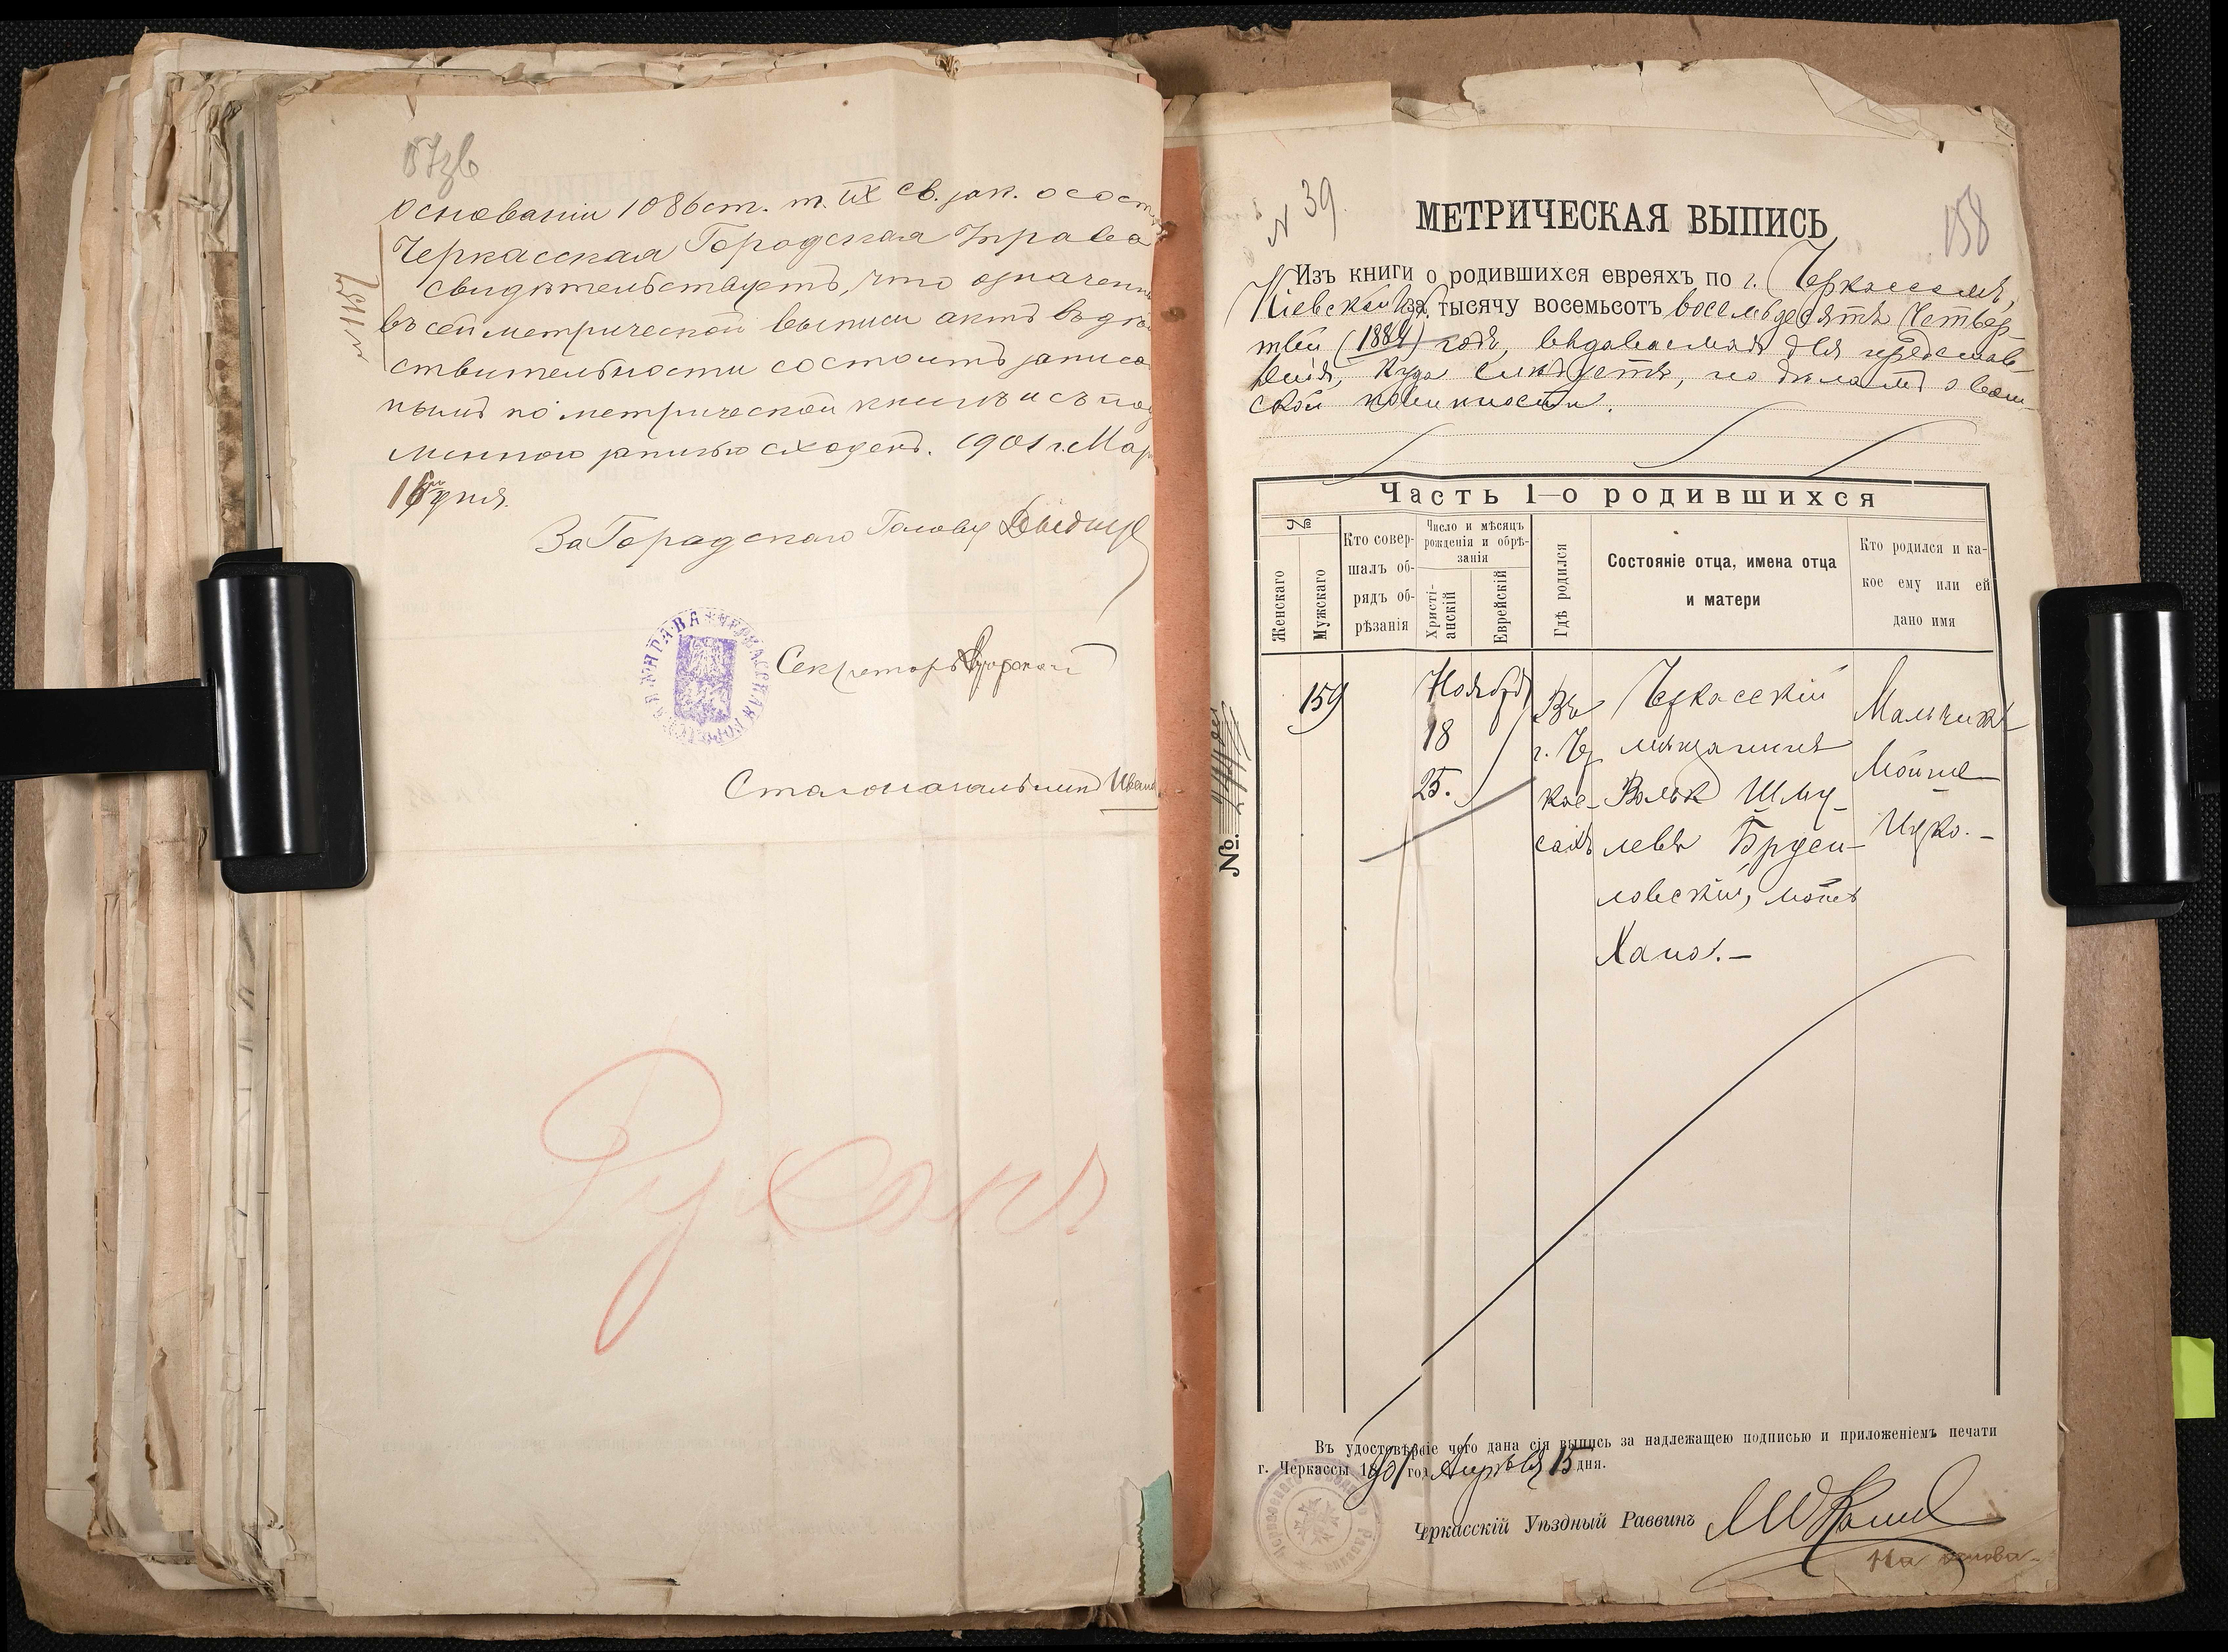 157зв
основаніи 1086 ст. т. IX св. зак. о сост.
Черкасская Городская Управа
свидѣтельствуетъ, что означенн
въ сей метрической выписи актъ въ дѣй
ствительности состоитъ записа
нымъ по метрической книгѣ и съ под
линною записью сходенъ. 1901 г. Мар
16 дня.
№1157
За Городского Голову
Секретарь
Столоначальникъ Иванов
ЧЕРКАССКАЯ ГОРОДСКАЯ УПРАВА
№ 39.
158
МЕТРИЧЕСКАЯ ВЫПИСЬ
Изъ книги о родившихся евреяхъ по г. Черкассамъ,
Кіевской губ. за тысячу восемьсотъ восемьдесятъ четвер-
тый (1884) годъ, выдаваемая для представ-
ленія, куда слѣдуетъ, по дѣламъ о воин-
ской повинности.
Часть 1-о родившихся
№
Женскаго
Мужскаго
Кто совер-
шалъ об-
рядъ об-
рѣзанія
Число и мѣсяцъ
рожденія и обрѣ-
занія
Христі-
анскій
Еврейскій
Гдѣ родился
Состояніе отца, имена отца
и матери
Кто родился и ка-
кое ему или ей
дано имя
159
Ноября
18
25.
Въ
г. Чер
кас-
сахъ
Черкасскій
мѣщанинъ
Волько Шму-
левъ Бруси-
ловскій, мать
Хана. —
Мальчикъ
Мойше
Ицко. —
№.
Въ удостовѣреніе чего дана сія выпись за надлежащею подписью и приложеніемъ печати
г. Черкассы 1901 год Апрѣля 15 дня.
Черкасскій Уѣздный Раввинъ
На основа-